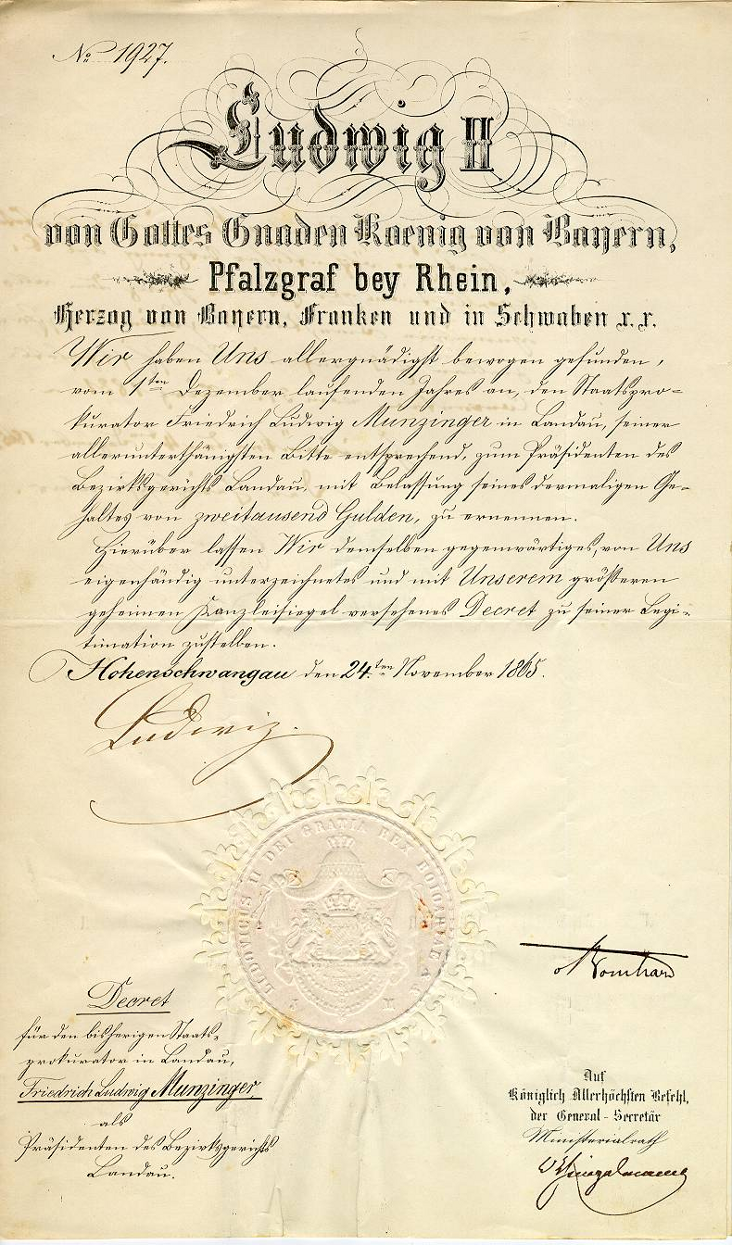 No 1927.
Ludwig II
von Gottes Gnaden Koenig von Bayern,
Pfalzgraf bey Rhein,
Herzog von Bayern, Franken und in Schwaben x. x.
Wir haben Uns allergnädigst bewogen gefunden,
vom 1ten Dezember laufenden Jahres an, den Staatspro-
kurator Friedrich Ludwig Munzinger in Landau, seiner
allerunterthänigsten Bitte entsprechend, zum Präsidenten des
Bezirksgerichts Landau, mit Belassung seines dermaligen Ge-
haltes von zweitausend Gulden, zu ernennen.
Hierüber lassen Wir demselben gegenwärtiges, von Uns
eigenhändig unterzeichnetes und mit Unserem größeren
geheimen Kanzleisiegel versehenes Decret zu seiner Legi-
timation zustellen.
Hohenschwangau den 24.ten November 1865.
Ludwig.
LUDOVICUS II DEI GRATIA REX BOIOARIAE
Bomhard
Decret
für den bisherigen Staats-
prokurator in Landau,
Friedrich Ludwig Munzinger
als
Präsidenten des Bezirksgerichts
Landau.
Auf
Königlich Allerhöchsten Befehl,
der General-Secretär
Ministerialrath